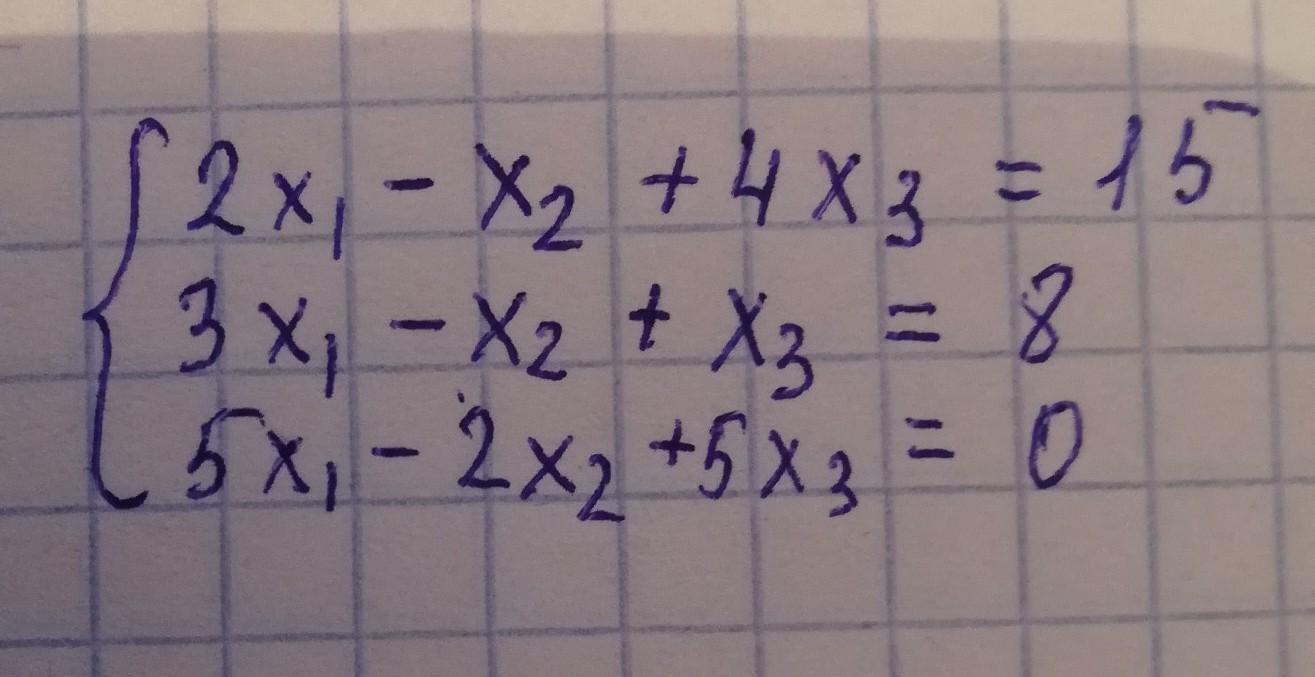 2x₁ - x₂ + 4x₃ = 15
3x₁ - x₂ + x₃ = 8
5x₁ - 2x₂ + 5x₃ = 0